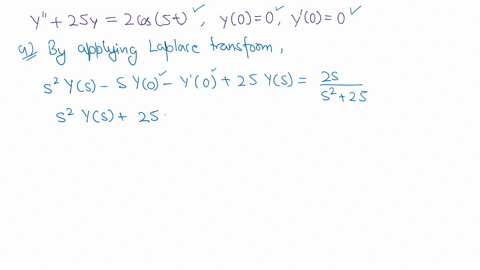 y'' + 25y = 2cos(5t) ✓, y(0)=0 ✓, y'(0)=0 ✓
a) By applying Laplace transform,
s² Y(s) - S Y(0) ✓ - Y'(0) ✓ + 25 Y(s) = 2s / s² + 25
s² Y(s) + 25